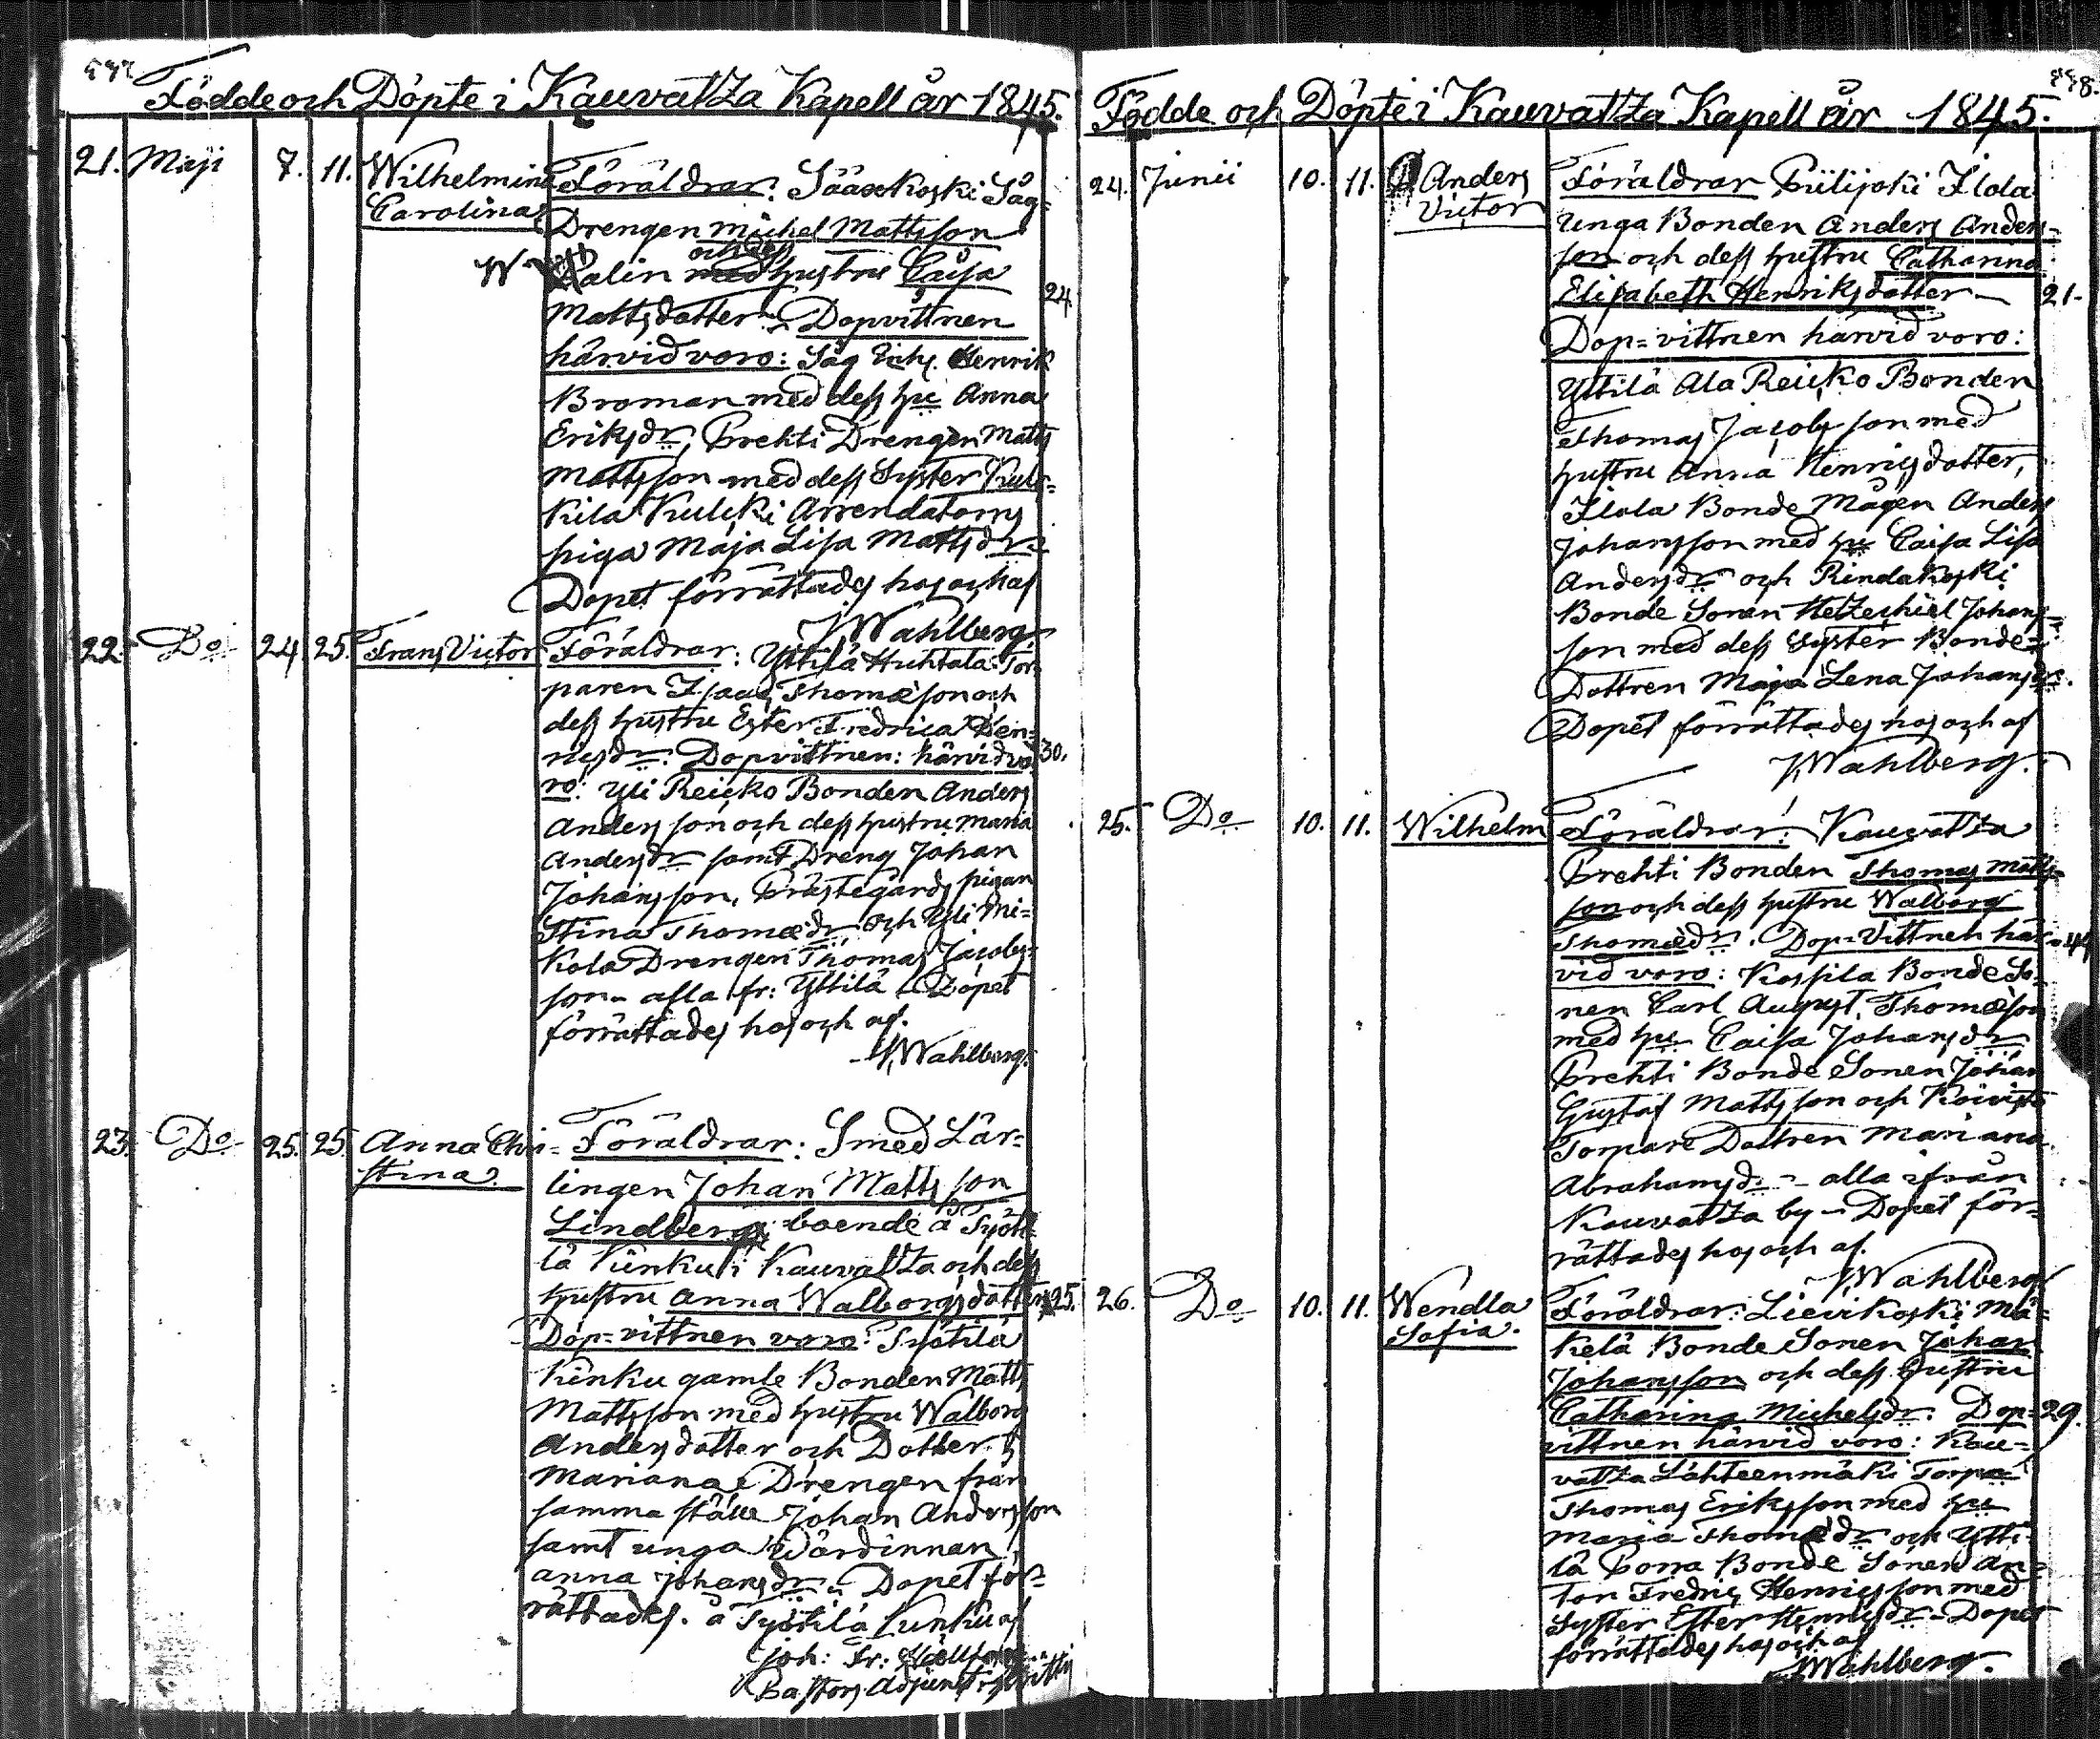 Födde och Döpte i Kauvatza Kapell år 1845.
21. Maji 7. 11. Wilhelmina Carolina
Föräldrar: Sääxkoski Såg-
Drengen Michel Mattsson
och dess
Walin med hustru Caisa
Mattsdotter. Dopvittnen 24.
härvid voro: Såg Insp. Henrik
Broman med dess hu Anna
Eriksdr, Prehti Drengen Matts
Mattsson med dess Syster Kulc-
kila Kulcki Arrendatorns
piga Maja Lisa Mattsdr
Dopet förrättades hos och af
J Wahlberg
22. Do 24 25. Frans Victor
Föräldrar: Yttilä Huhtala Tor-
paren Isaac Thomæson och
dess hustru Ester Fredrica Hen-
ricsdr. Dopvittnen: härvid vo- 30.
ro: Yli Reicko Bonden Anders
Andersson och dess hustru Maria
Andersdr samt Dreng Johan
Johansson, Prästegårds pigan
Stina Thomædr och Yli Mi-
kola Drengen Thomas Jacobs-
son - alla fr: Yttilä - Dopet
förrättades hos och af.
J Wahlberg.
23. Do 25. 25. Anna Chri-
stina.
Föräldrar: Smed Lär-
lingen Johan Mattsson
Lindberg, boende å Työti-
lä Kinku i Kauvatza och dess
hustru Anna Walborgsdotter 25.
Dop-vittnen voro: Työtilä
Kinku gamle Bonden Matts
Mattsson med hustru Walborg
Andersdotter och Dotter
Mariana Drengen från
samma ställe Johan Andersson
samt unga Wärdinnan
Anna Johansdr. Dopet för-
rättades. å Työtilä Kinku af
Joh: Fr:
Pastors Adjunct i
Födde och Döpte i Kauvatza Kapell år 1845.
24. Junii 10. 11. Anders
Victor
Föräldrar Piilijoki Ilola
Unga Bonden Anders Anders-
son och dess hustru Catharina
Elisabeth Henriksdotter 21-
Dop-vittnen härvid voro:
Yttilä Ala Reicko Bonden
Thomas Jacobsson med
hustru Anna Henricsdotter,
Ilola Bonde Mågen Anders
Johansson med hu Caisa Lisa
Andersdr och Rindakoski
Bonde Sonen Hetzechiel Johans-
son med dess Syster Bonde-
Dottren Maja Lena Johansdr.
Dopet förrättades hos och af
J Wahlberg.
25. Do 10. 11. Wilhelm
Föräldrar: Kauvatza
Prehti Bonden Thomas Matts-
son och dess hustru Walborg
Thomædr. Dop-Vittnen här- 44
vid voro: Kospila Bonde So-
nen Carl August Thomæson
med hu Caisa Johansdr
Prehti Bonde Sonen Johan
Gustaf Mattsson och Koivisto
Torpare Dottren Mariana
Abrahamsdr - alla ifrån
Kauvatza by - Dopet för-
rättades hos och af.
J Wahlberg
26. Do 10. 11. Wendla
Sofia.
Föräldrar: Lievikoski Mä-
kelä Bonde Sonen Johan
Johansson och dess Hustru
Catharina Michelsdr. Dop- 29.
vittnen härvid voro: Kau-
vatza Lähteenmäki Torpa
Thomas Eriksson med hu
Maria Thomædr och Ytti-
lä Porra Bonde Sonen An-
ton Fredric Henricsson med
Syster Ester Henricsdr - Dopet
förrättades hos och af
J Wahlberg.